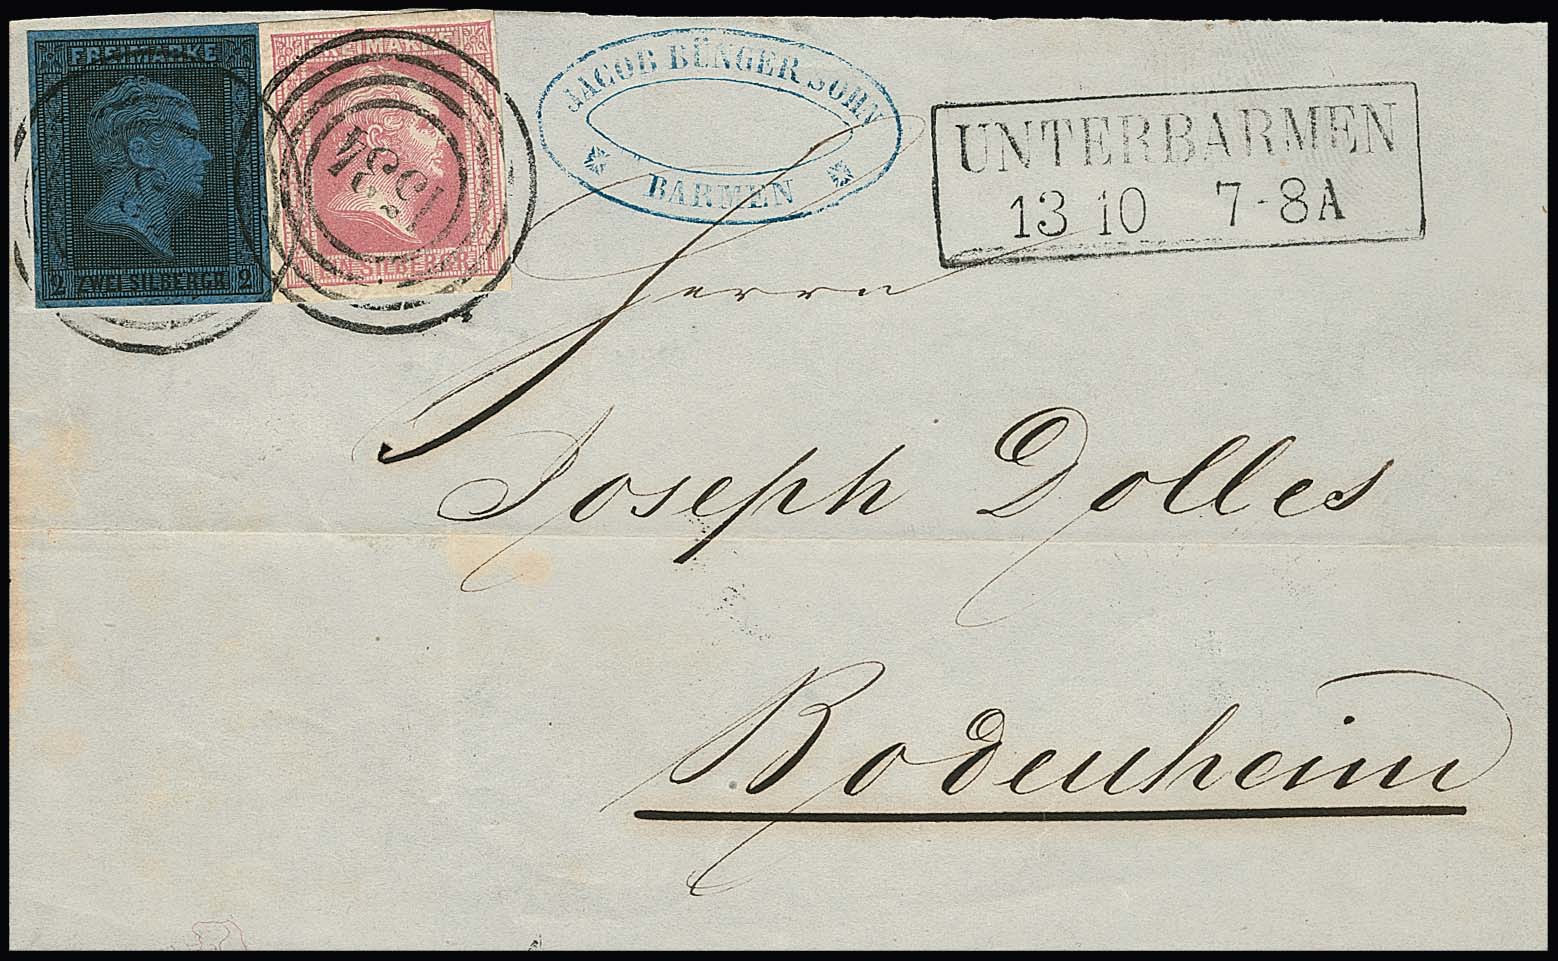 FREIMARKE
2 ZWEI SILBERGR. 2
FREIMARKE
EIN SILBERGR.
1534
JACOB BÜNGER SOHN
BARMEN
UNTERBARMEN
13 10 7-8A
Herrn
Joseph Dolles
Bodenheim